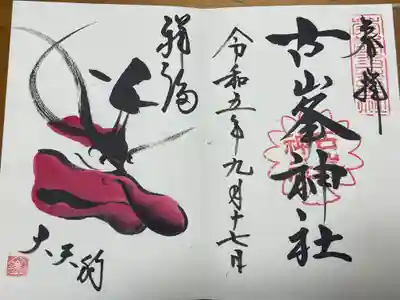 奉拝
古峯神社
令和五年九月十七日
祥福
大天狗